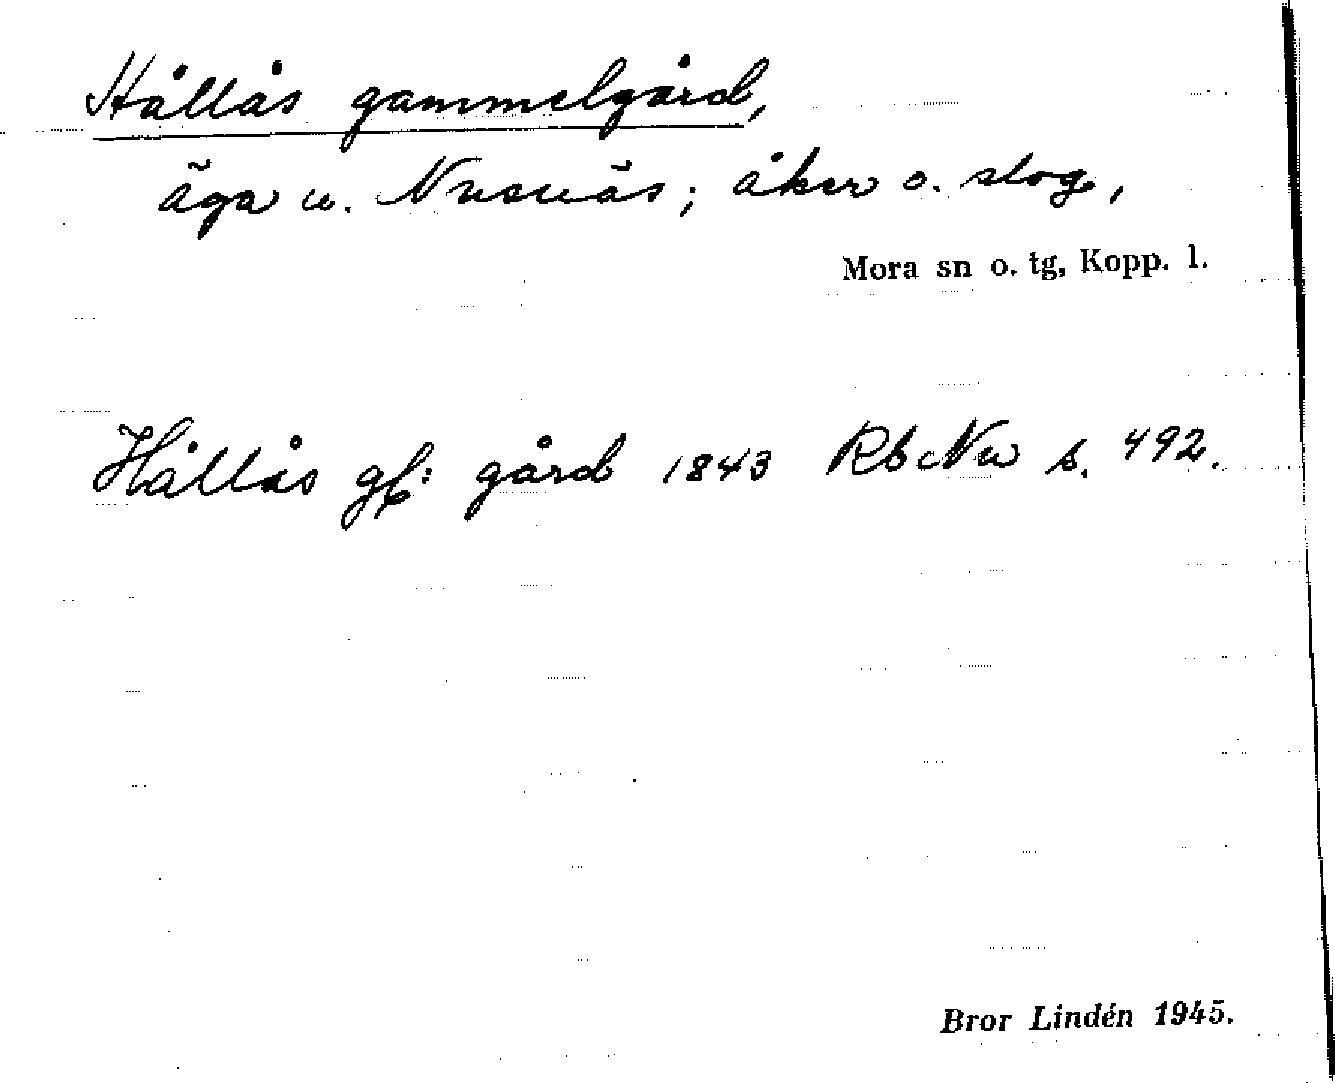 Hållås gammelgård,
äga u. Nusnäs; åker o. slog,
Mora sn o. tg, Kopp. l.
Hållås gl: gård 1843 Rb Nu s. 492.
Bror Lindén 1945.